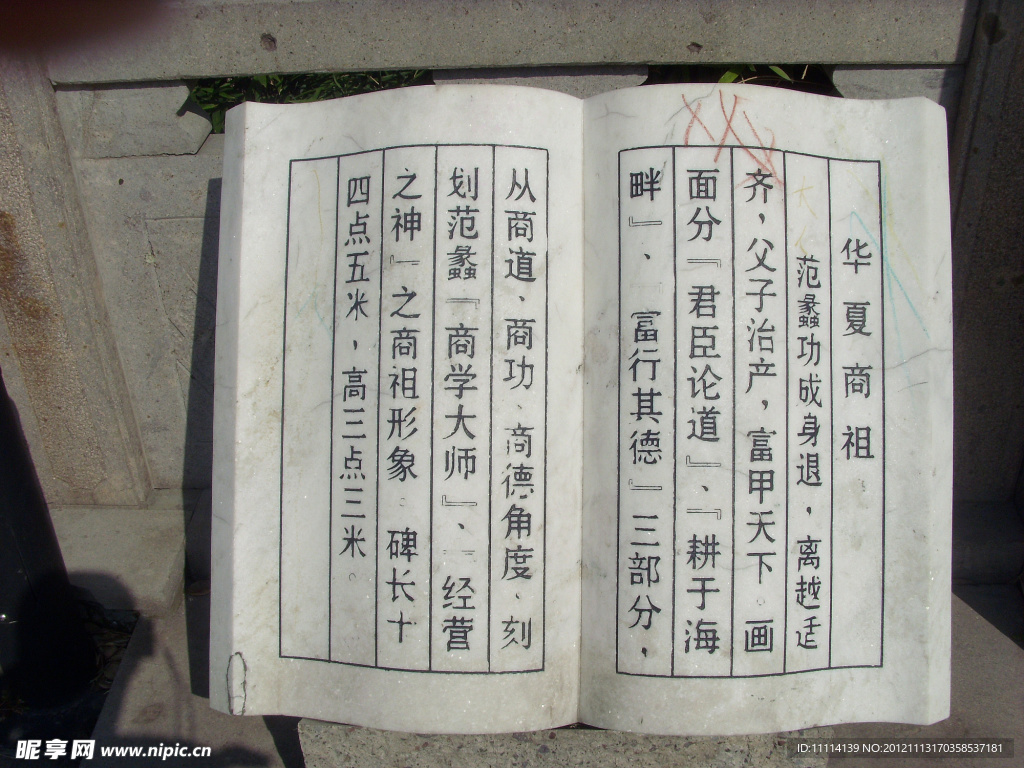 华夏商祖
范蠡功成身退，离越适
齐，父子治产，富甲天下。画
面分『君臣论道』、『耕于海
畔』、『富行其德』三部分，
从商道、商功、商德角度、刻
划范蠡『商学大师』、『经营
之神』之商祖形象。碑长十
四点五米，高三点三米。
昵享网 www.nipic.cn
ID:11114139 NO:20121113170358537181